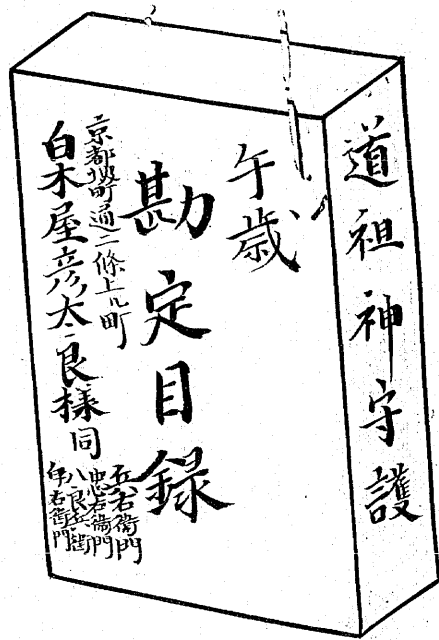 道祖神守護
午歳
勘定目録
京都堺町通二條上ル町
白木屋彦太良様同
五右衛門
忠右衛門
八良兵衛
伊右衛門